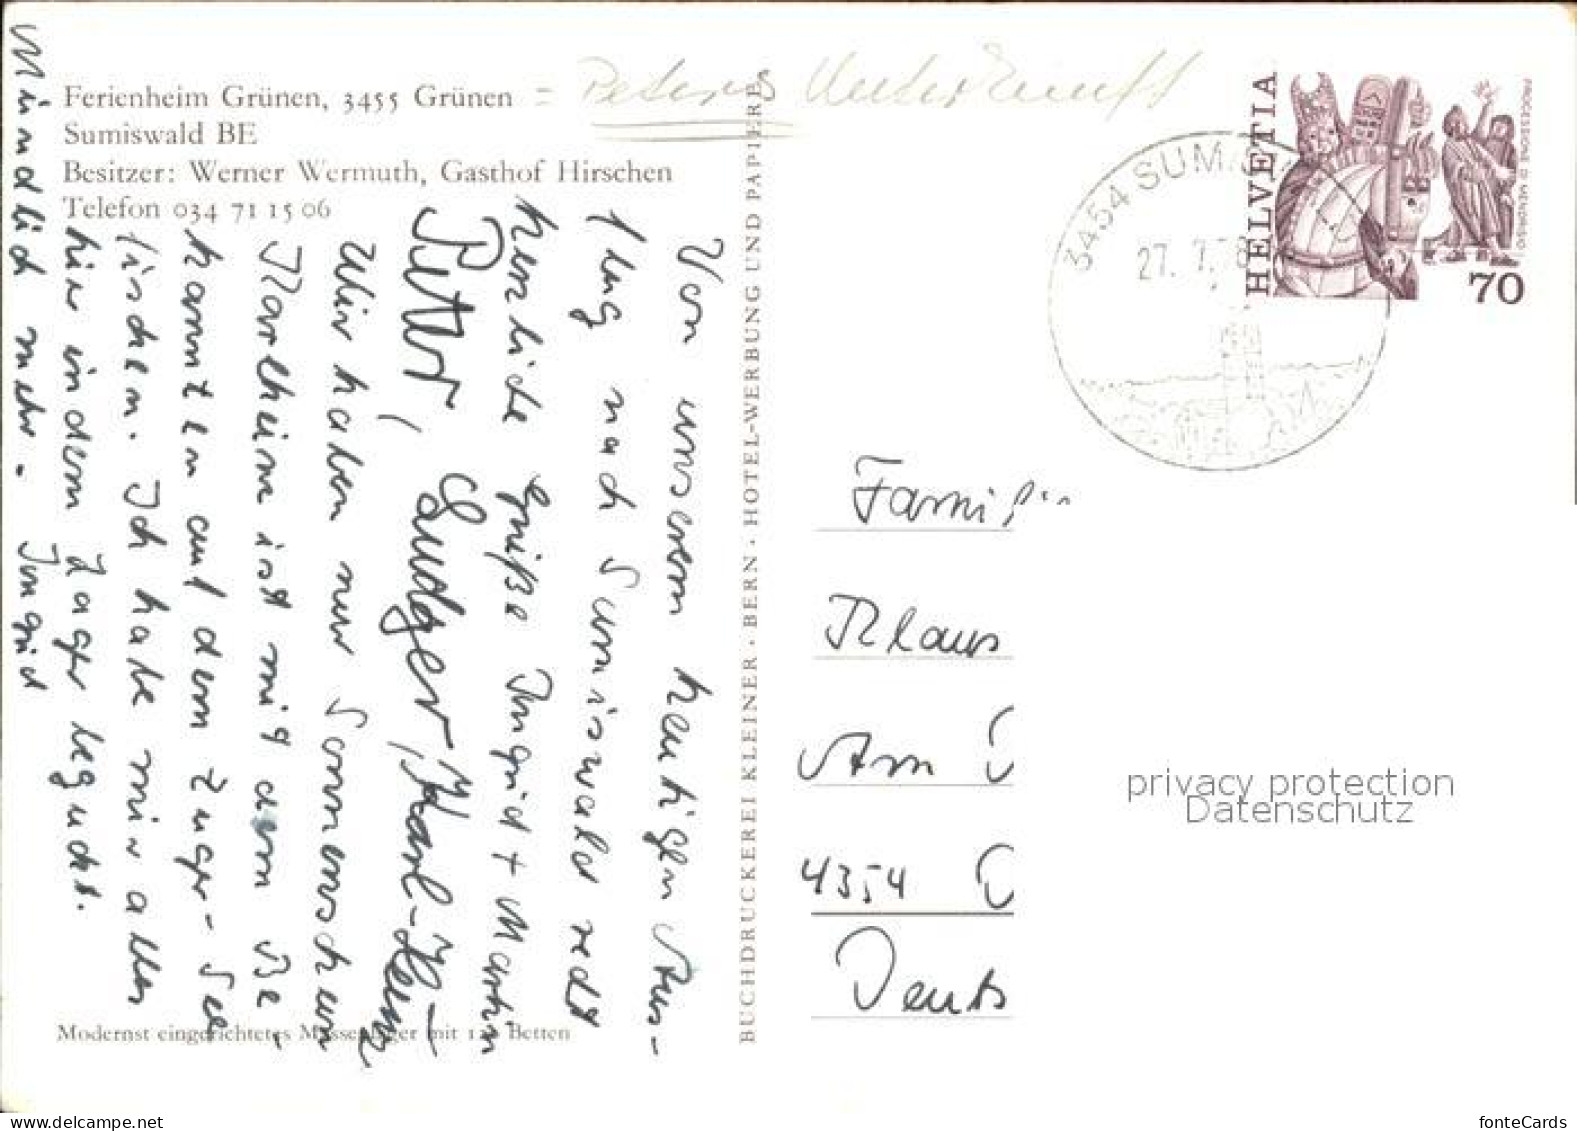 Ferienheim Grünen, 3455 Grünen = Peters Unterkunft
Sumiswald BE
Besitzer: Werner Wermuth, Gasthof Hirschen
Telefon 034 71 15 06
Von unserem heutigen Aus-
flug nach Sumiswald recht
herzliche Grüße Ingrid + Martin
Peter, Ludger, Karl-Heinz
Wir haben nur Sonnenschein
Karlheinz ist mit dem Be-
kannten auf dem Zuger-See
fischen. Ich habe mir alles
hier in dem Lager beguckt.
Mündlich mehr. Ingrid
Modernst eingerichtetes Massenlager mit Betten
BUCHDRUCKEREI KLEINER · BERN · HOTEL-WERBUNG UND PAPIERE
HELVETIA
PROCESSIONE DI MENDRISIO
70
3454 SUMIS
27. 7. 78
Famili
Klaus
Am
4354
Deuts
privacy protection
Datenschutz
www.delcampe.net
fonteCards